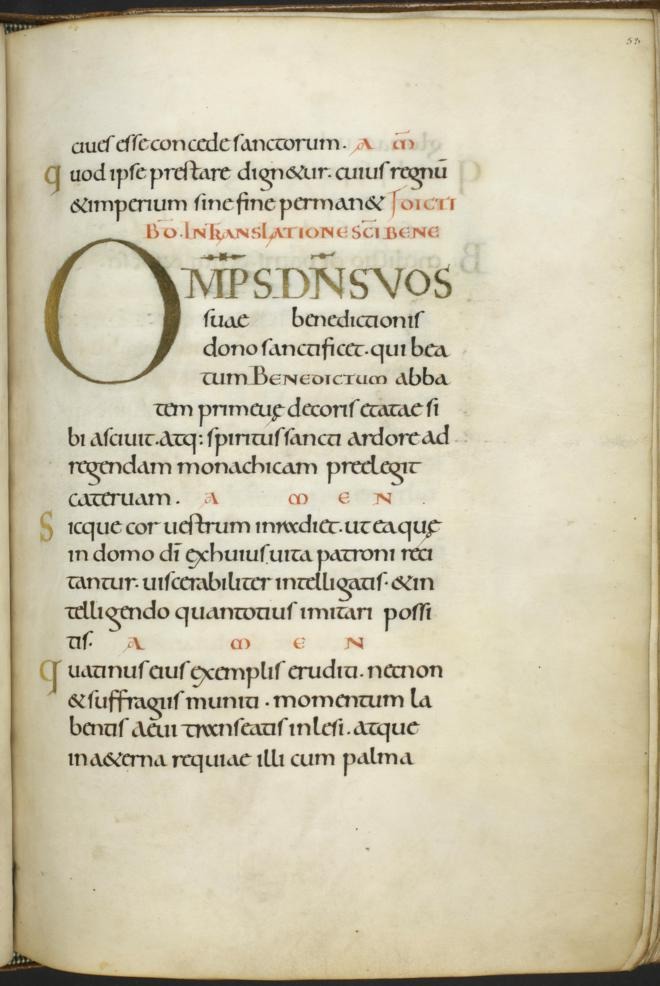 53
ciues esse concede sanctorum. A m̅
quod ipse prestare dign&ur. cuius regnū
&imperium sine fine perman& 
BD̅. IN TRANSLATIONE SC̅I BENE DICTI
OMP̅S. DN̅S VOS
suae benedictionis
dono sanctificet. qui bea
tum BENEDICTUM abba
tem primeuę decoris etatae si
bi asciuit. atq: spiritus sancti ardore ad
regendam monachicam preelegit
cateruam. A M E N
Sicque cor uestrum inradiet. ut ea quę
in domo dī ex huius uita patroni reci
tantur. uiscerabiliter intelligatis. &in
telligendo quantotius imitari possi
tis. A M E N
quatinus eius exemplis eruditi. necnon
&suffragiis muniti. momentum la
bentis aeui transeatis inlesi. atque
in a&erna requiae illi cum palma